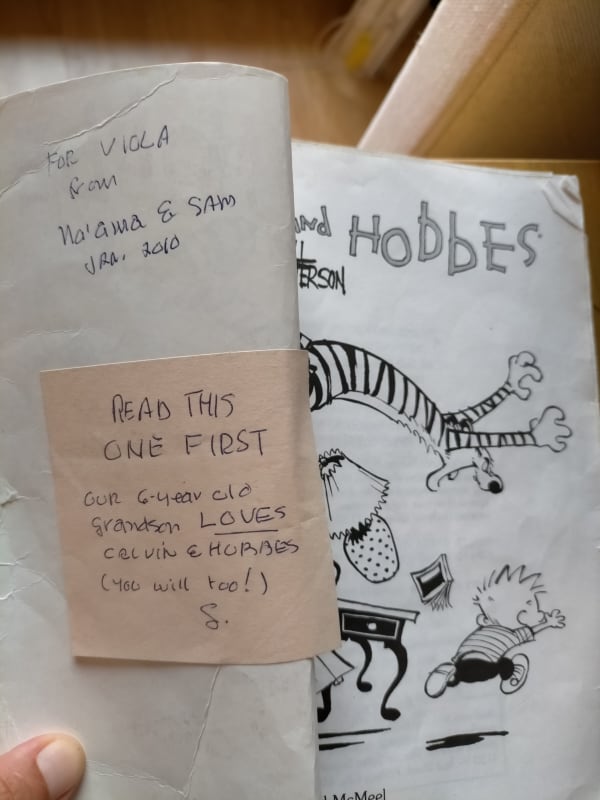 FOR VIOLA
from
Na'ama & SAM
JAN. 2010
READ THIS
ONE FIRST
OUR 6-year old
grandson LOVES
CALVIN & HOBBES
(you will too!)
S.
and HObbES
ERSON
McMeel